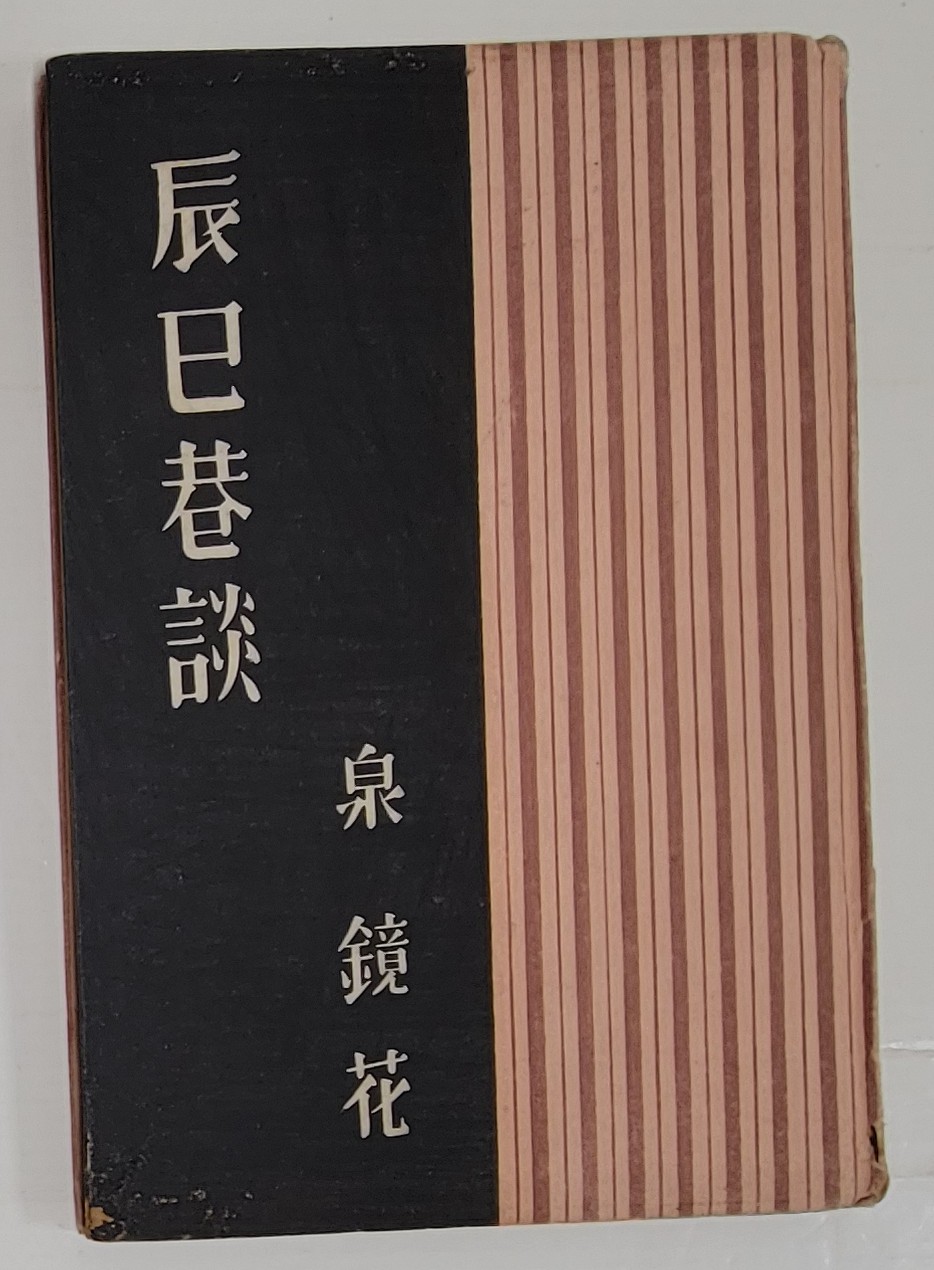 辰巳巷談
泉鏡花